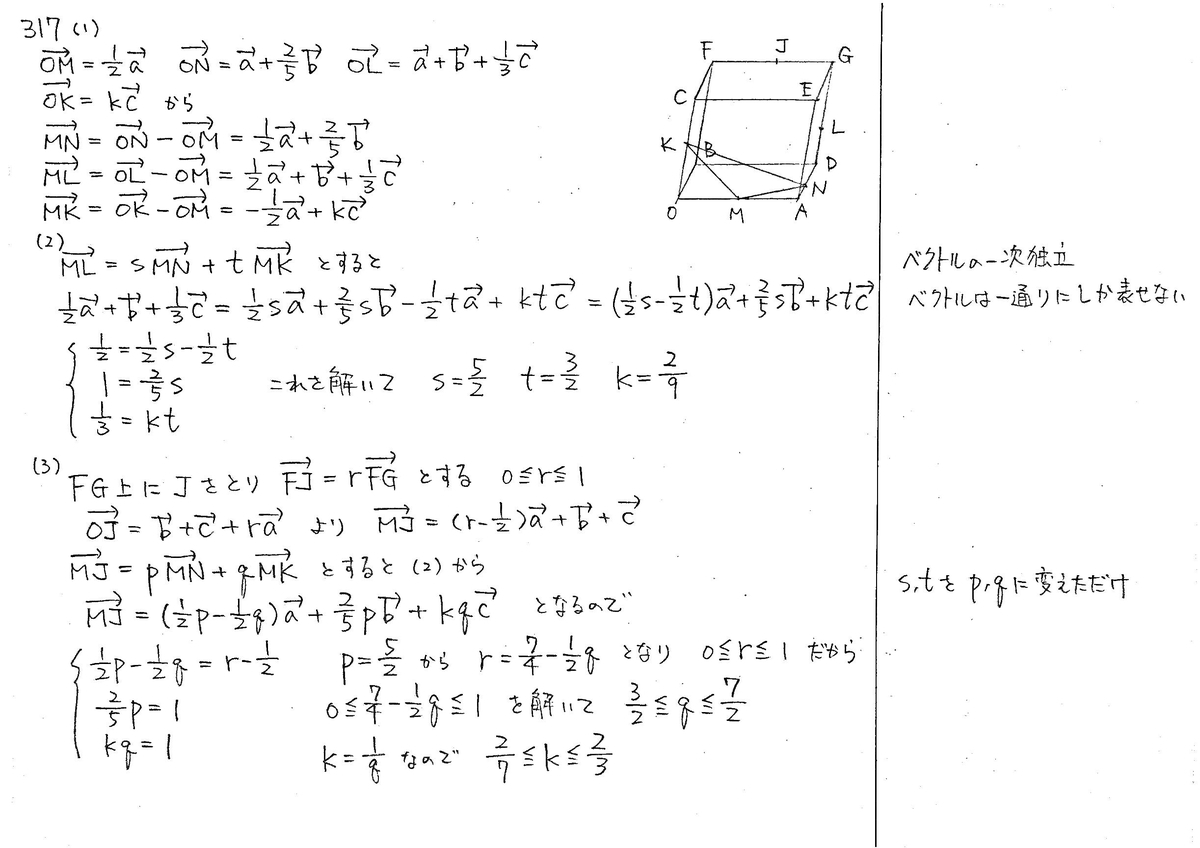 317 (1)
OM→ = 1/2 a→  ON→ = a→ + 2/5 b→  OL→ = a→ + b→ + 1/3 c→
OK→ = kc→ から
MN→ = ON→ − OM→ = 1/2 a→ + 2/5 b→
ML→ = OL→ − OM→ = 1/2 a→ + b→ + 1/3 c→
MK→ = OK→ − OM→ = −1/2 a→ + kc→
F J G
C E
K B L
D
N
O M A
(2)
ML→ = sMN→ + tMK→ とすると
1/2 a→ + b→ + 1/3 c→ = 1/2 sa→ + 2/5 sb→ − 1/2 ta→ + ktc→ = (1/2 s − 1/2 t)a→ + 2/5 sb→ + ktc→
1/2 = 1/2 s − 1/2 t
1 = 2/5 s  これを解いて  s = 5/2  t = 3/2  k = 2/9
1/3 = kt
ベクトルの一次独立
ベクトルは一通りにしか表せない
(3)
FG上にJをとり FJ→ = rFG→ とする 0≦r≦1
OJ→ = b→ + c→ + ra→ より MJ→ = (r − 1/2)a→ + b→ + c→
MJ→ = pMN→ + qMK→ とすると (2)から
MJ→ = (1/2 p − 1/2 q)a→ + 2/5 pb→ + kqc→ となるので
1/2 p − 1/2 q = r − 1/2  p = 5/2 から r = 7/4 − 1/2 q となり 0≦r≦1 だから
2/5 p = 1  0≦7/4 − 1/2 q≦1 を解いて 3/2≦q≦7/2
kq = 1  k = 1/q なので 2/7≦k≦2/3
s,tをp,qに変えただけ